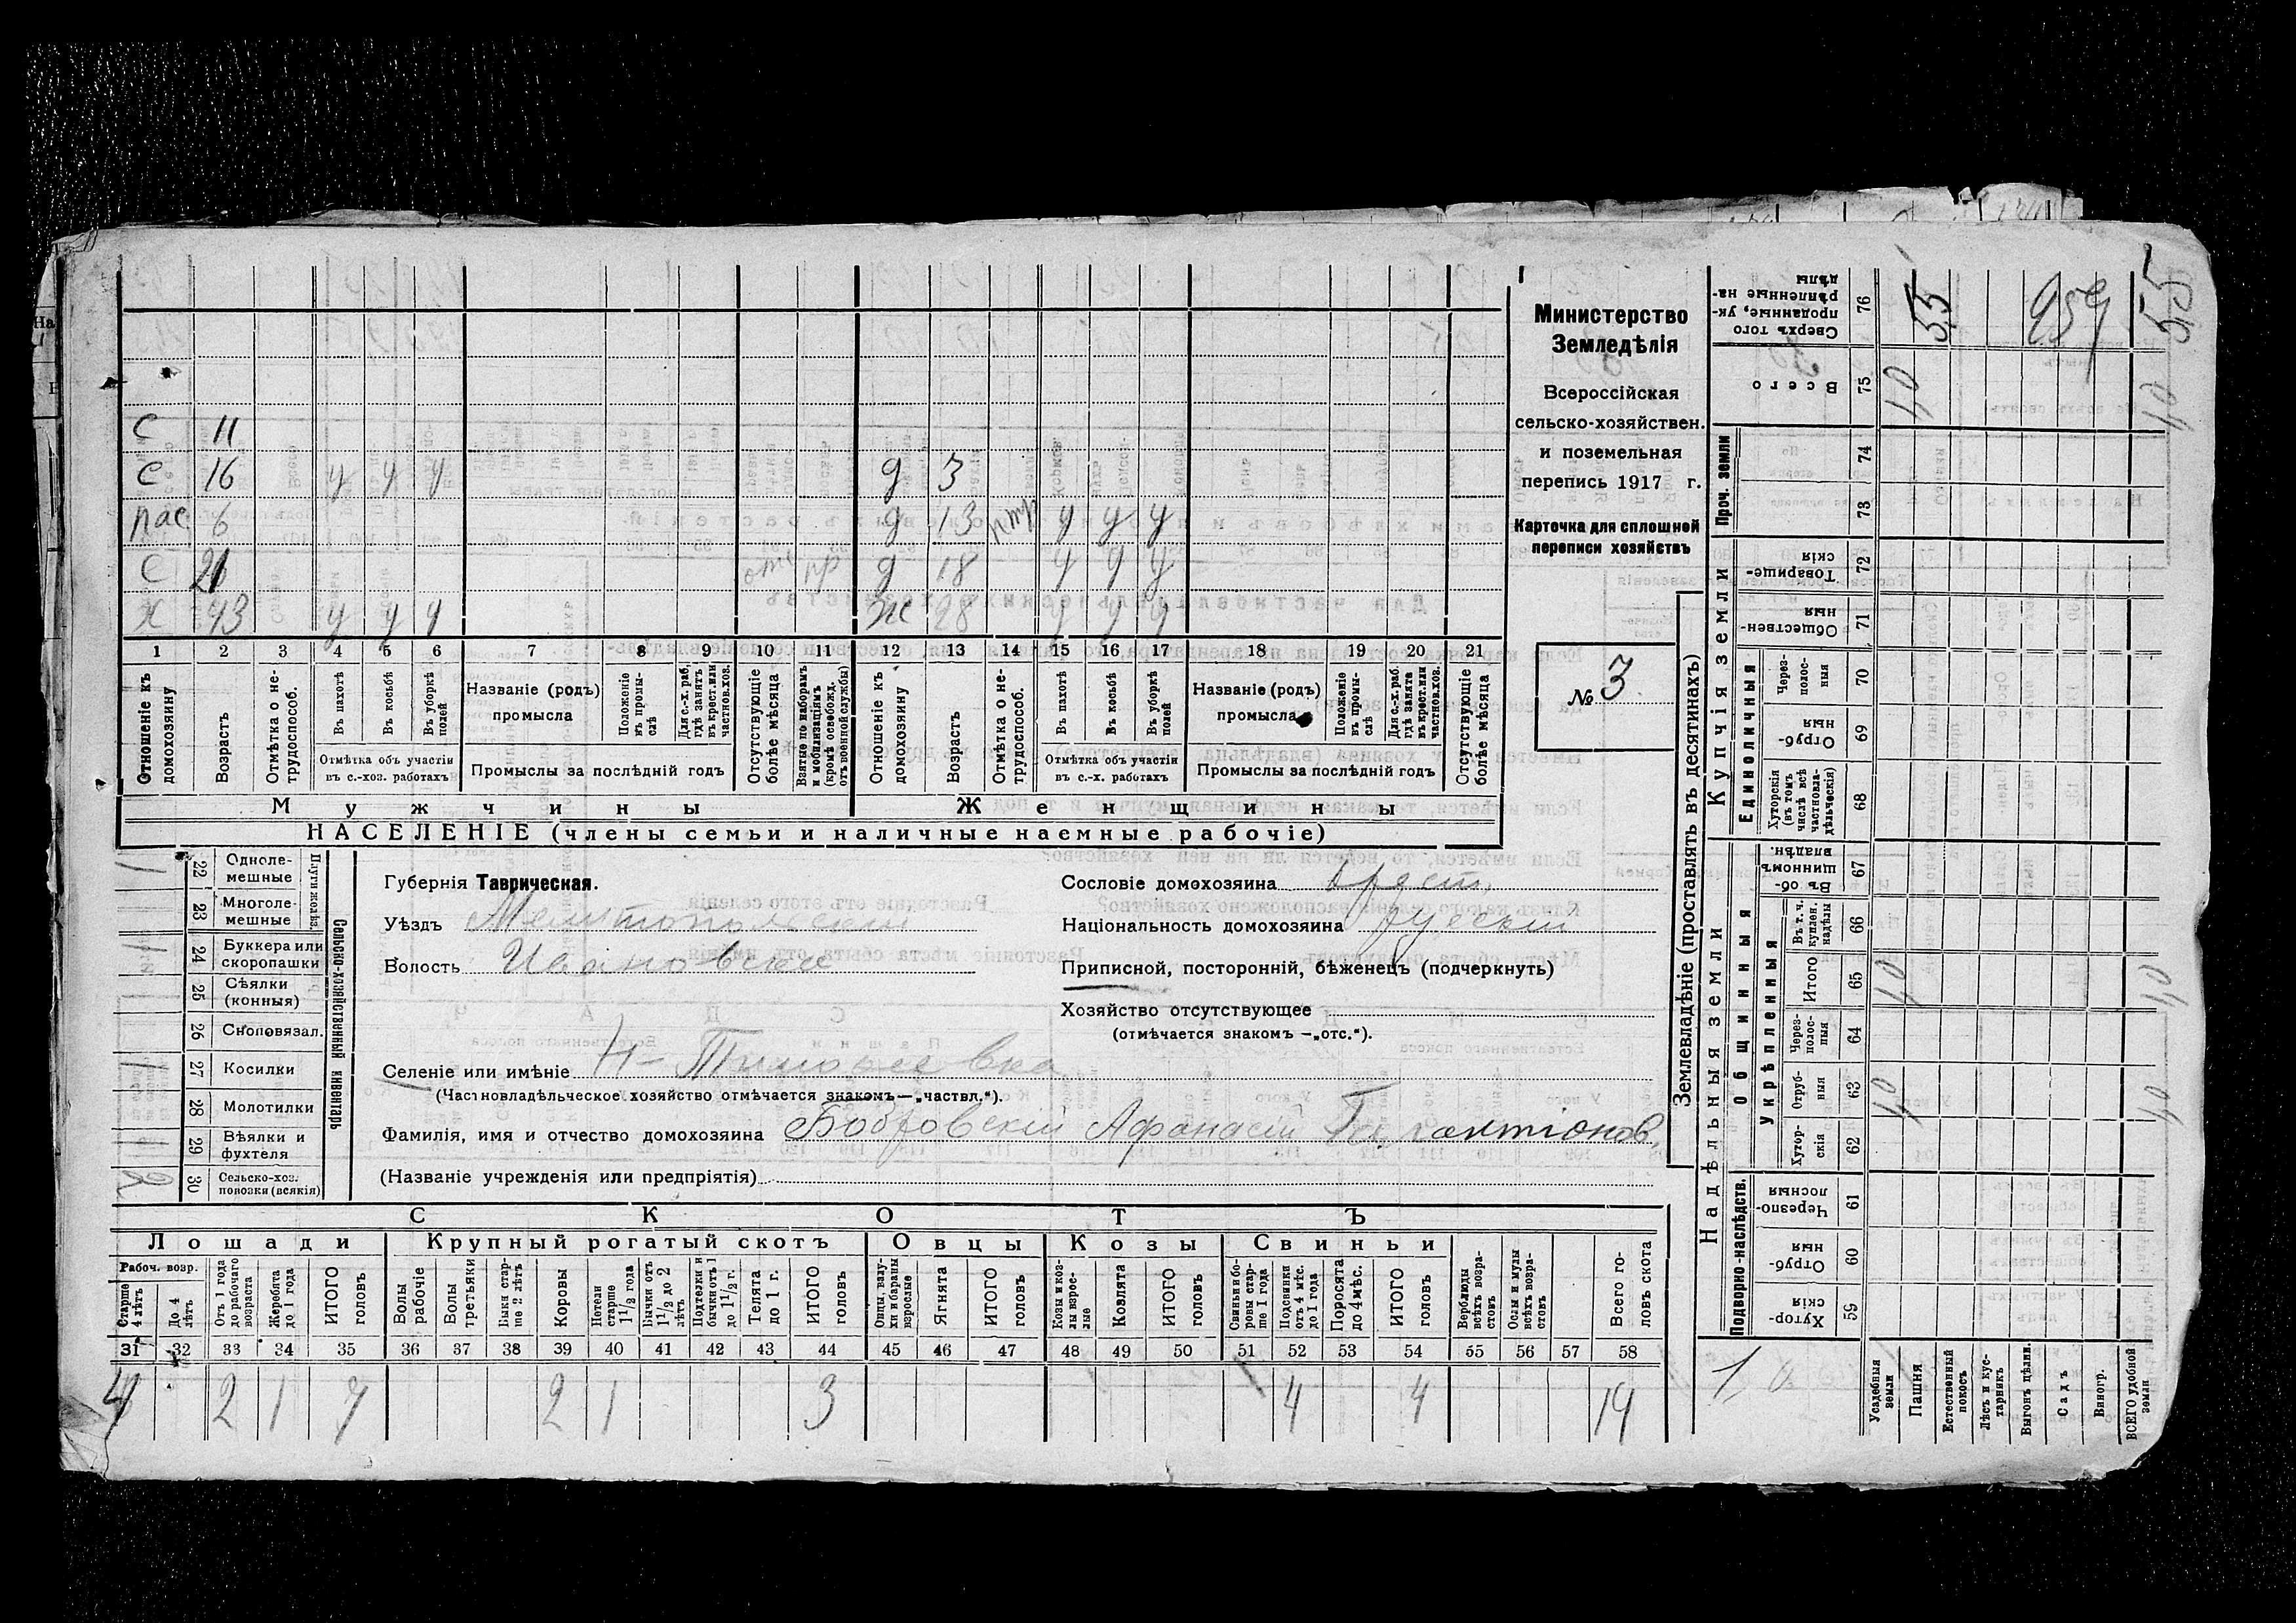 С 11
С 16 у у у д 3
пас. 6 д 13 у у у
С 21 отс пр д 18 у у у
х 43 у у у ж 28 у у у
1 2 3 4 5 6 7 8 9 10 11 12 13 14 15 16 17 18 19 20 21
Отношеніе къ домохозяину
Возрастъ
Отмѣтка о нетрудоспособ.
Въ пахотѣ
Въ косьбѣ
Въ уборкѣ полей
Отмѣтка объ участіи
въ с.-хоз. работахъ
Названіе (родъ)
промысла
Положеніе въ промыслѣ
Для с.-х. раб. гдѣ занятъ въ крест. или частнов. хоз.
Промыслы за послѣдній годъ
Отсутствующіе болѣе мѣсяца
Взятые по наборамъ и мобилизаціямъ (кромѣ освобожд. отъ военной службы)
Отношеніе къ домохозяину
Возрастъ
Отмѣтка о нетрудоспособ.
Въ пахотѣ
Въ косьбѣ
Въ уборкѣ полей
Отмѣтка объ участіи
въ с.-х. работахъ
Названіе (родъ)
промысла
Положеніе въ промыслѣ
Для с.-х. раб. гдѣ занята въ крест. или частнов. хоз.
Промыслы за послѣдній годъ
Отсутствующіе болѣе мѣсяца
Мужчины Женщины
НАСЕЛЕНІЕ (члены семьи и наличные наемные рабочіе)
Министерство
Земледѣлія
Всероссійская
сельско-хозяйствен.
и поземельная
перепись 1917 г.
Карточка для сплошной
переписи хозяйствъ
№ 3
Сельско-хозяйственный инвентарь
Плуги желѣз.
22 Однолемешные
23 Многолемешные
24 Буккера или скоропашки
25 Сѣялки (конныя)
26 Сноповязал.
27 Косилки
28 Молотилки
29 Вѣялки и фухтеля
30 Сельско-хоз. повозки (всякія) 2
Губернія Таврическая.
Уѣздъ Мелитопольскій
Волость Ивановская
Сословіе домохозяина крест.
Національность домохозяина русскій
Приписной, посторонній, бѣженецъ (подчеркнуть)
Хозяйство отсутствующее
(отмѣчается знакомъ —„отс.“).
Селеніе или имѣніе Н-Тимошевка
(Частновладѣльческое хозяйство отмѣчается знакомъ—„частвл.“).
Фамилія, имя и отчество домохозяина Бобровскій Афанасій Галактіонов.
(Названіе учрежденія или предпріятія)
СКОТЪ
Лошади Крупный рогатый скотъ Овцы Козы Свиньи
Рабоч. возр.
Старше 4 лѣтъ
До 4 лѣтъ
Отъ 1 года до рабочаго возраста
Жеребята до 1 года
ИТОГО головъ
Волы рабочіе
Волы третьяки
Быки старше 2 лѣтъ
Коровы
Нетели старше 1 1/2 года
Бычки отъ 1 1/2 до 2 лѣтъ
Подтелки и бычки отъ 1 до 1 1/2 г.
Телята до 1 г.
ИТОГО головъ
Овцы, валухи и бараны взрослые
Ягнята
ИТОГО головъ
Козы и козлы взрослые
Козлята
ИТОГО головъ
Свиньи и боровы старше 1 года
Подсвинки отъ 4 мѣс. до 1 года
Поросята до 4 мѣс.
ИТОГО головъ
Верблюды всѣхъ возрастовъ
Ослы и мулы всѣхъ возрастовъ
Всего головъ скота
31 32 33 34 35 36 37 38 39 40 41 42 43 44 45 46 47 48 49 50 51 52 53 54 55 56 57 58
4 2 1 7 2 1 3 4 4 14
Землевладѣніе (проставлять въ десятинахъ)
Надѣльныя земли
Купчія земли
Проч. земли
Подворно-наслѣдств.
Общинныя
Укрѣпленныя
Единоличныя
Сверхъ того проданные, укрѣпленные надѣлы 76 55
Всего 75 40
74
73
Товарищескія 72
Общественныя 71
Черезполосныя 70
Отрубныя 69
Хуторскія (въ томъ числѣ всѣ частновладѣльческія) 68
Въ общинномъ владѣн. 67
Въ т. ч. куплен. надѣлы 66
Итого 65 40
Черезполосныя 64
Отрубныя 63 40
Хуторскія 62
Черезполосныя 61
Отрубныя 60
Хуторскія 59
Усадебныя земли
Пашня
Естественный покосъ
Лѣсъ и кустарникъ
Выгонъ цѣлин.
Садъ
Виногр.
ВСЕГО удобной земли
959
55
40
40
40